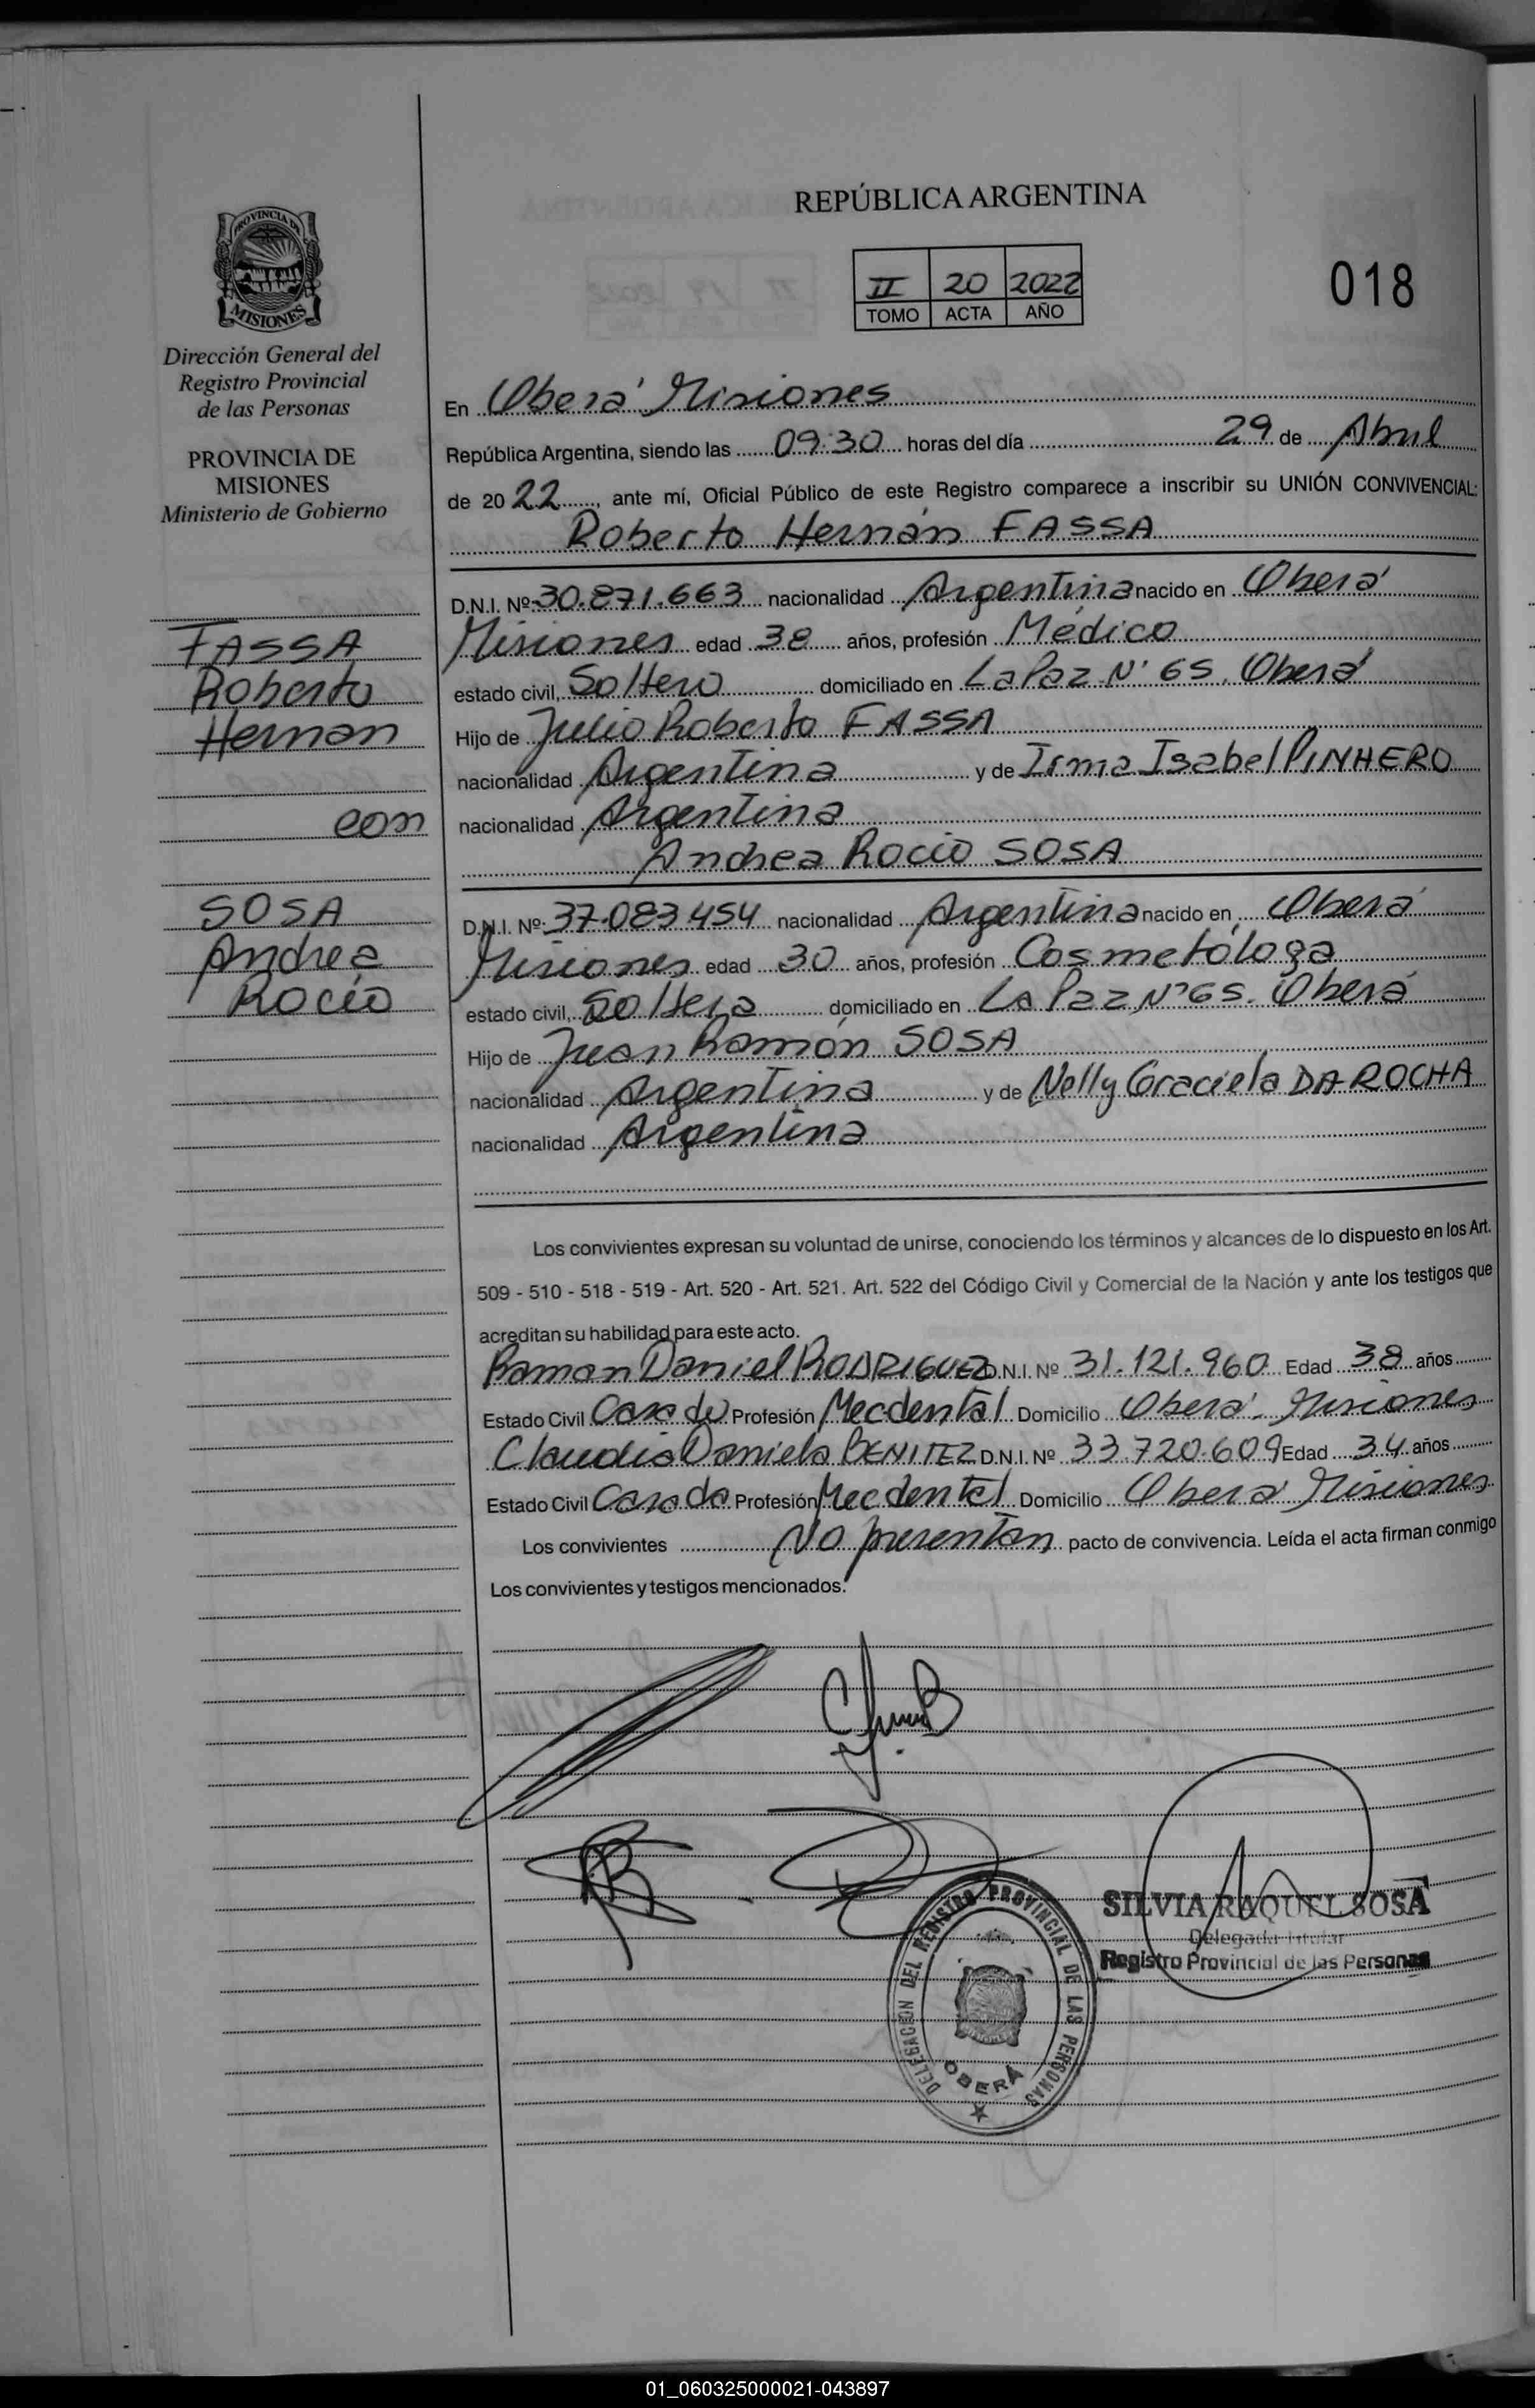 REPÚBLICA ARGENTINA
II 20 2022
TOMO ACTA AÑO
018
PROVINCIA DE
MISIONES
Dirección General del
Registro Provincial
de las Personas
PROVINCIA DE
MISIONES
Ministerio de Gobierno
FASSA
Roberto
Hernan
con
SOSA
Andrea
Rocío
En Oberá Misiones
República Argentina, siendo las 09:30 horas del día 29 de Abril
de 2022, ante mí, Oficial Público de este Registro comparece a inscribir su UNIÓN CONVIVENCIAL:
Roberto Hernán FASSA
D.N.I. Nº 30.871.663 nacionalidad Argentina nacido en Oberá
Misiones edad 38 años, profesión Médico
estado civil, Soltero domiciliado en La Paz Nº 65. Oberá
Hijo de Julio Roberto FASSA
nacionalidad Argentina y de Irma Isabel PINHERO
nacionalidad Argentina
Andrea Rocío SOSA
D.N.I. Nº 37.083.454 nacionalidad Argentina nacido en Oberá
Misiones edad 30 años, profesión Cosmetóloga
estado civil, Soltera domiciliado en La Paz Nº 65. Oberá
Hijo de Juan Ramón SOSA
nacionalidad Argentina y de Nelly Graciela DA ROCHA
nacionalidad Argentina
Los convivientes expresan su voluntad de unirse, conociendo los términos y alcances de lo dispuesto en los Art.
509 - 510 - 518 - 519 - Art. 520 - Art. 521. Art. 522 del Código Civil y Comercial de la Nación y ante los testigos que
acreditan su habilidad para este acto.
Ramon Daniel RODRIGUEZ D.N.I. Nº 31.121.960 Edad 38 años
Estado Civil Casado Profesión Mecdental Domicilio Oberá. Misiones
Claudia Daniela BENITEZ D.N.I. Nº 33.720.609 Edad 34 años
Estado Civil Casada Profesión Mecdental Domicilio Oberá Misiones
Los convivientes No presentan pacto de convivencia. Leída el acta firman conmigo
Los convivientes y testigos mencionados.
SILVIA RAQUEL SOSA
Delegada Titular
Registro Provincial de las Personas
DELEGACION DEL REGISTRO PROVINCIAL DE LAS PERSONAS
OBERÁ
01_060325000021-043897